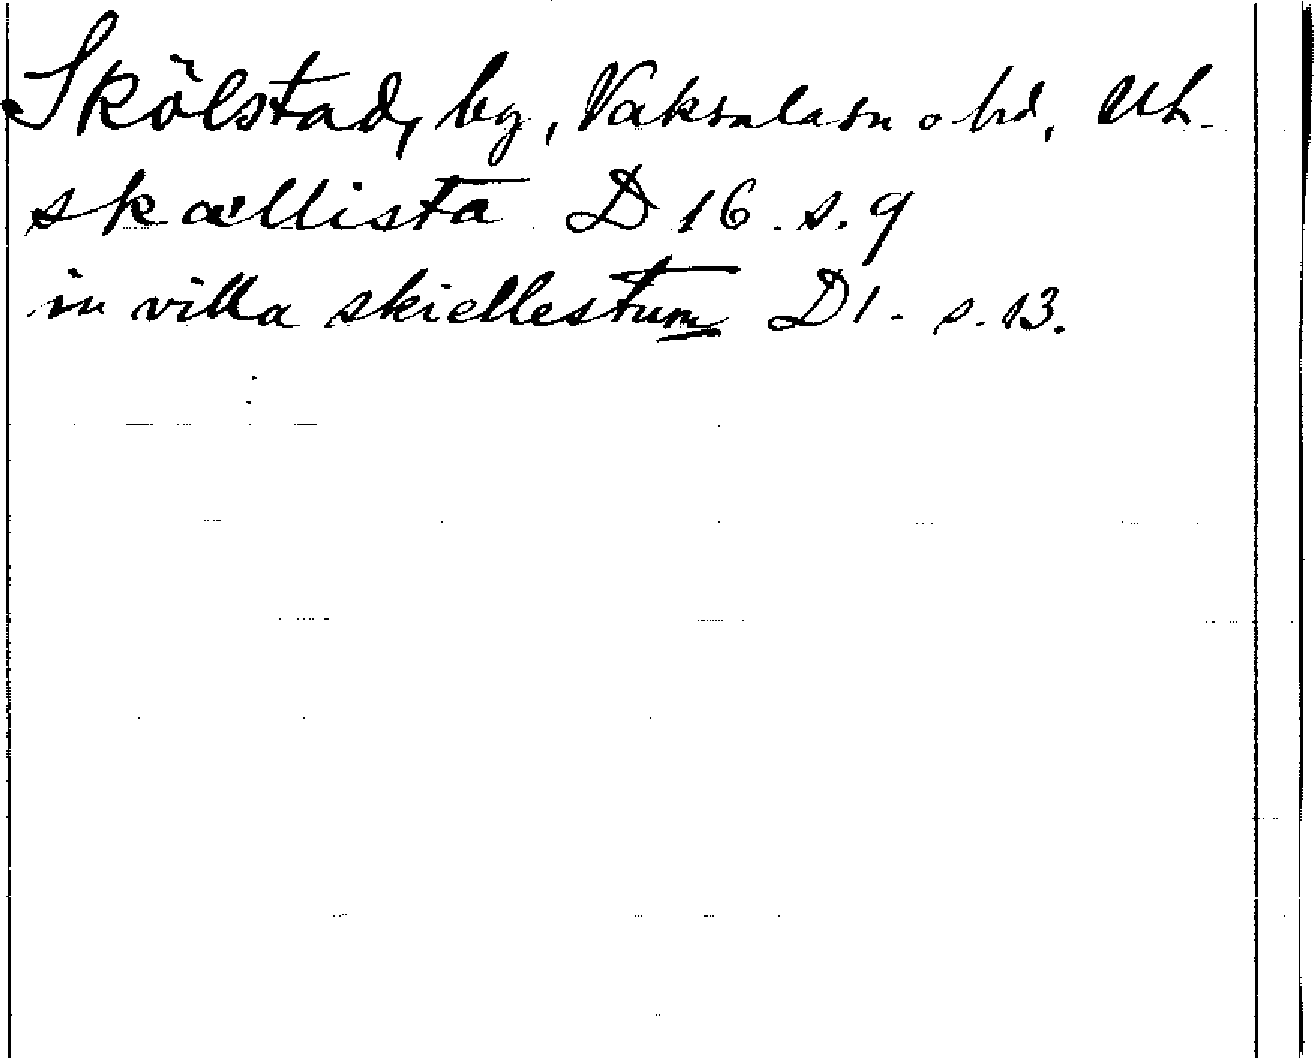 Skölstad, by, Vaksala sn o hd, Upl.
skællista D 16. s. 9
in villa skiellestum D 1. s. 13.